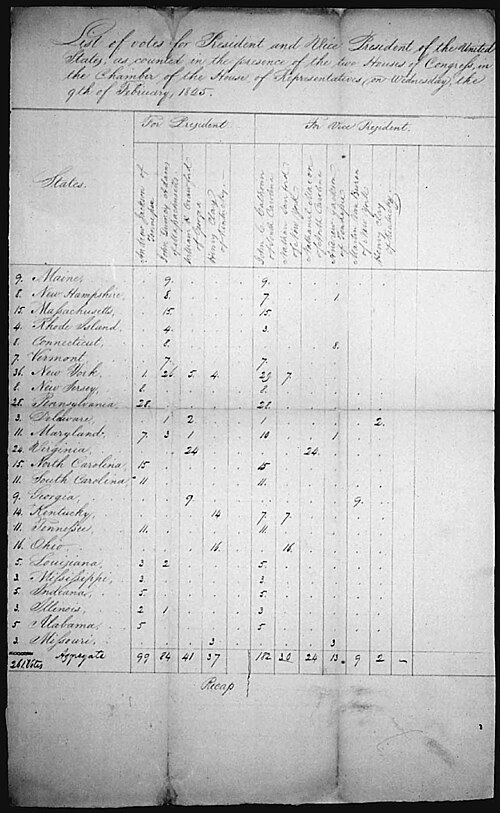 List of votes for President and Vice President of the United
States, as counted in the presence of the two Houses of Congress, in
the Chamber of the House of Representatives, on Wednesday, the
9th of February, 1825.
For President
For Vice President.
States.
Andrew Jackson of Tennessee
John Quincy Adams of Massachusetts
William H Crawford of Georgia
Henry Clay of Kentucky
John C. Calhoun of South Carolina
Nathan Sanford of New York
Nathaniel Macon of North Carolina
Andrew Jackson of Tennessee
Martin Van Buren of New York
Henry Clay of Kentucky
9. Maine, 9. 9.
8. New Hampshire, 8. 7. 1
15. Massachusetts, 15 15.
4. Rhode Island, 4. 3.
8. Connecticut, 8. 8.
7. Vermont, 7. 7.
36. New York, 1. 26 5. 4. 29 7.
8. New Jersey, 8. 8.
28. Pennsylvania, 28. 28.
3. Delaware, 1 2. 1 2.
11. Maryland, 7. 3 1 10 1
24. Virginia, 24 24.
15. North Carolina 15 15.
11. South Carolina 11 11.
9. Georgia, 9. 9.
14. Kentucky, 14 7. 7.
11. Tennessee, 11. 11.
16. Ohio, 16. 16.
5. Louisiana, 3 2 5
3. Mississippi, 3 3
5. Indiana, 5 5
3. Illinois, 2 1 3
5. Alabama, 5 5
3. Missouri, 3 3
261 Votes Aggregate 99 84 41 37 182 30 24 13. 9 2 –
Recap